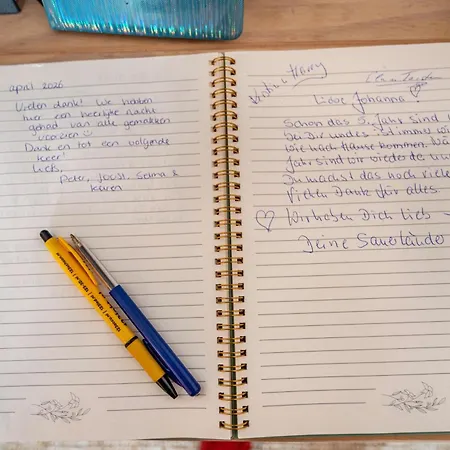 april 2026
Vielen dank! We hadden
hier een heerlijke nacht
gehad van alle gemakken
voorzien
Dank en tot een volgende
keer!
Liefs,
Peter, Joost, Selma &
Keven
Kristina Harry
Liebe Johanna!
Schon das 5. Jahr sind
bei Dir und es ist immer wi
wie nach Hause kommen. Nä
Jahr sind wir wieder da
Du machst das noch viele
Vielen Dank für alles
Wir haben Dich lieb
Deine Sauerländer